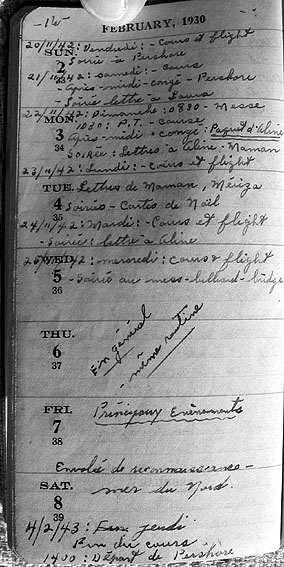 -16-
FEBRUARY, 1930
20/11/42: Vendredi: - Cours et flight
SUN.
2
33
Soirée à Pershore
21/11/42: samedi: - cours
- Après-midi - congé - Pershore
- Soirée lettre à Laura
22/11/42: Dimanche: 0730 - Messe
MON.
3
34
1030: P.T. - course
Après-midi: congé: Paquet d'Aline
Soirée: Lettres à Aline - Maman
23/11/42: Lundi: - Cours et flight
TUE.
4
35
Lettres de Maman, Mériza
Soirée - Cartes de Noël
24/11/42: Mardi: - Cours et flight
- Soirée: lettre à Aline
WED.
5
36
mercredi: Cours & flight
- Soirée au mess - billiard - bridge
THU.
6
37
En général
- même routine
FRI.
7
38
Principaux Evènements
Envolée de reconnaissance -
SAT.
8
39
mer du Nord.
4/2/43: jeudi
Fin du cours
1400: Départ de Pershore